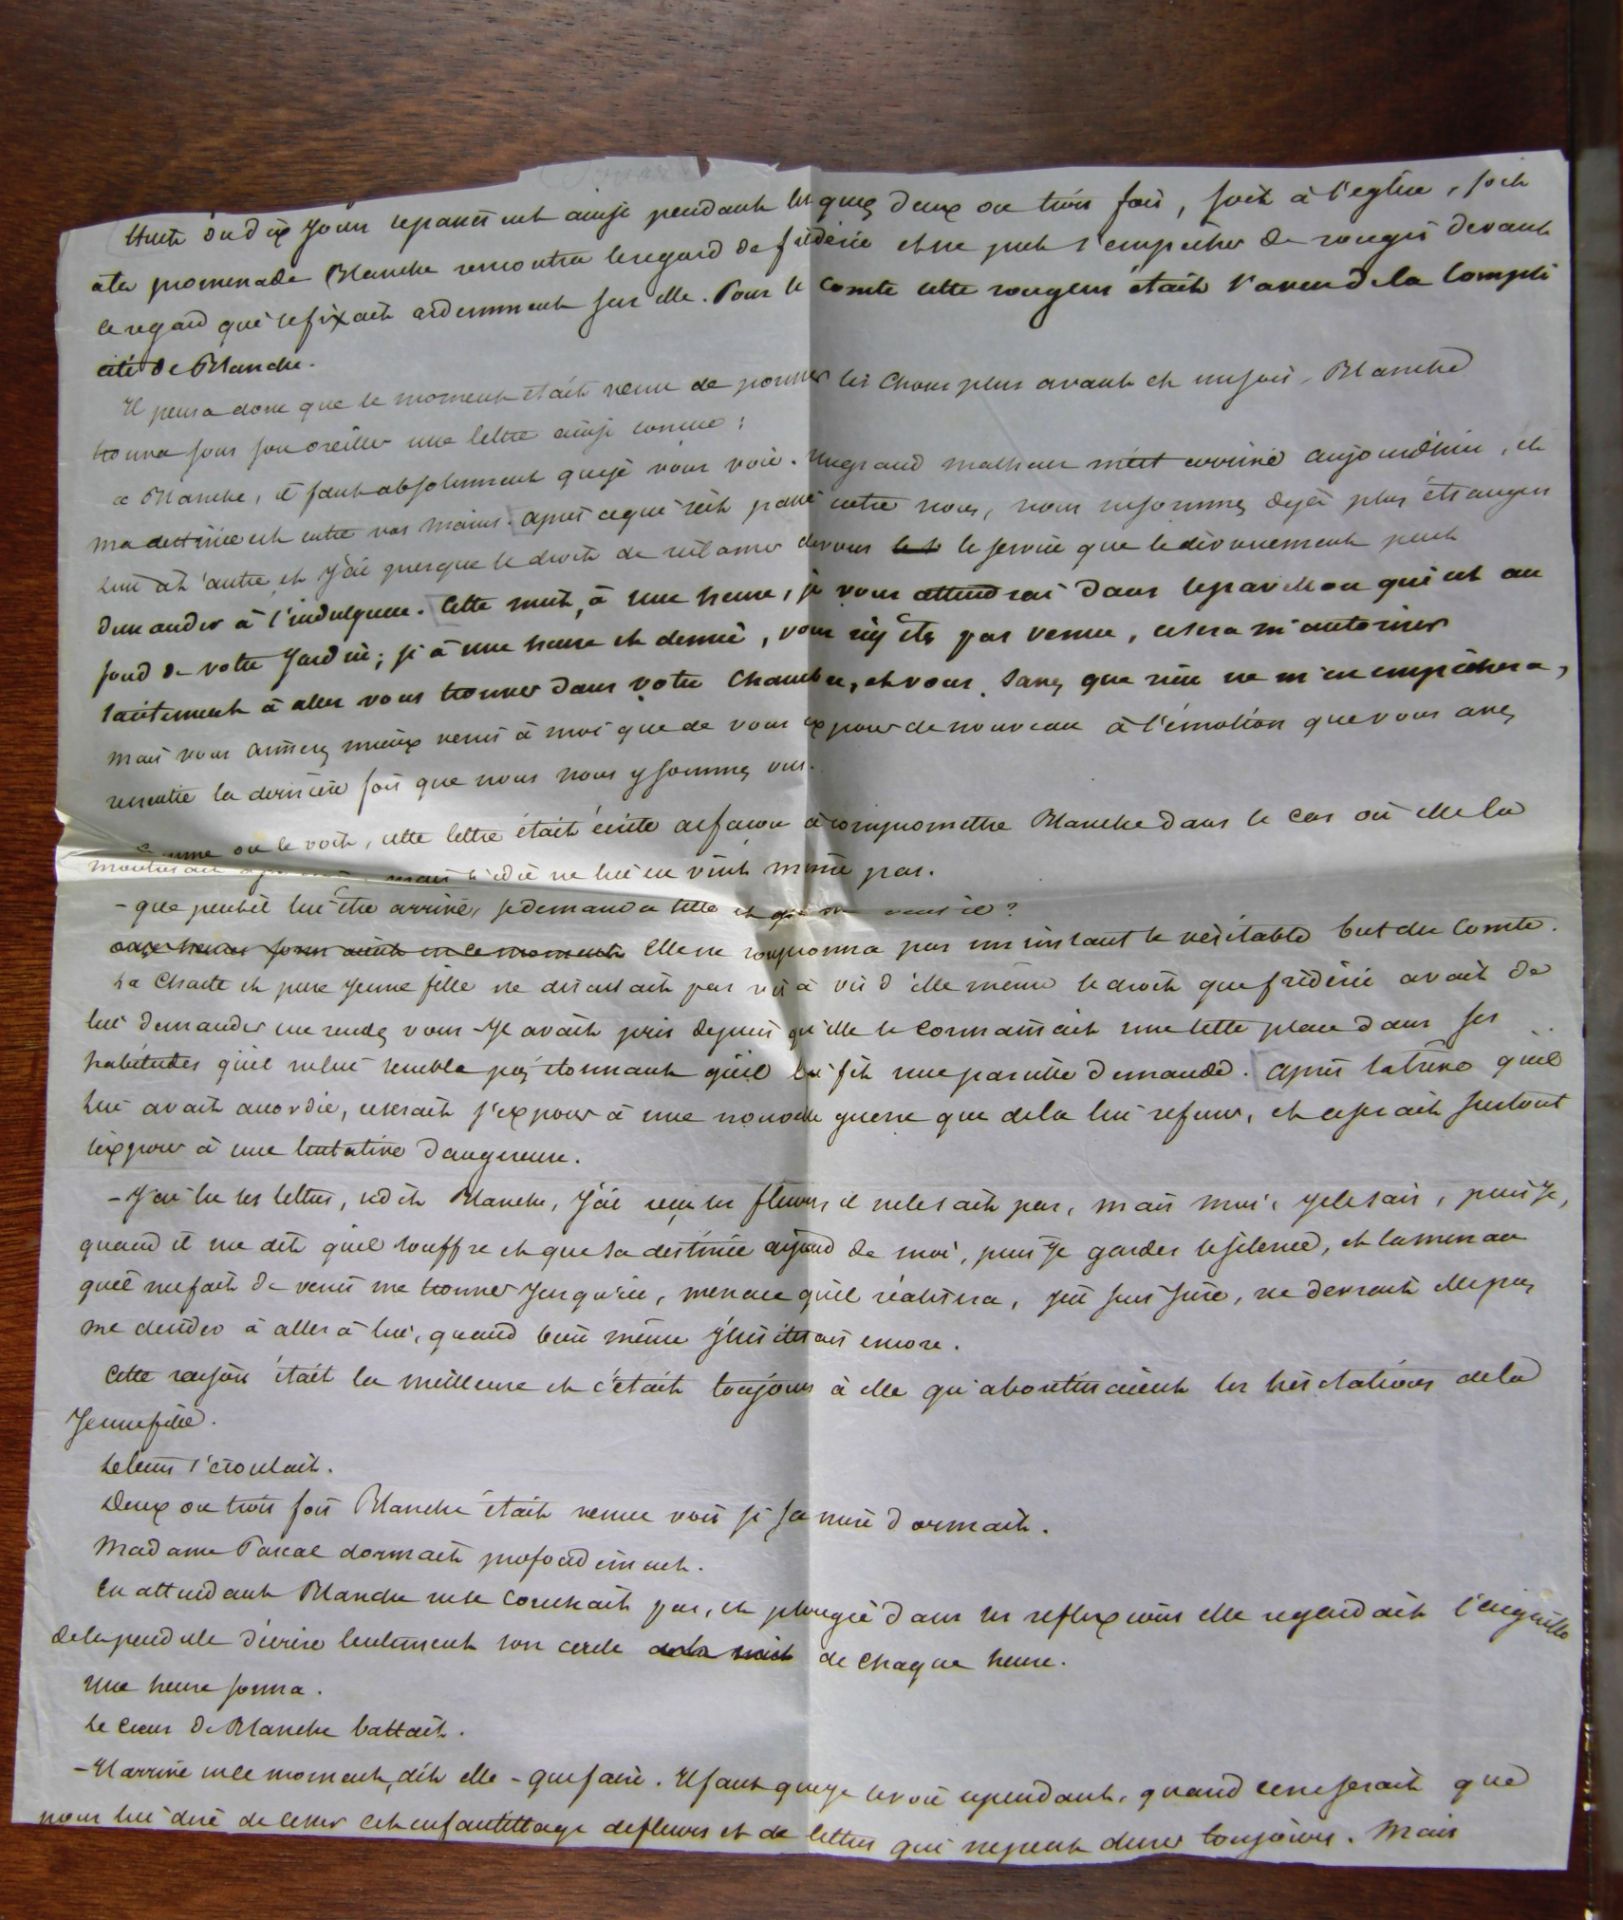 Huit ou dix jours se passèrent ainsi pendant lesquels deux ou trois fois, soit à l'eglise, soit
à la promenade Blanche rencontra le regard de frédéric et ne put s'empêcher de rougir devant
ce regard qui se fixait ardemment sur elle. Pour le Comte cette rougeur était l'aveu de la compli
cité de Blanche.
Il pensa donc que le moment était venu de pousser les choses plus avant et un soir, Blanche
trouva sous son oreiller une lettre ainsi conçue :
« Blanche, il faut absolument que je vous voie. Un grand malheur m'est arrivé aujourd'hui, et
ma destinée est entre vos mains. Après ce qui s'est passé entre nous, nous ne sommes déjà plus étrangers
l'un à l'autre, et j'ai presque le droit de réclamer de vous le service que le dévouement peut
demander à l'indulgence. Cette nuit, à une heure, je vous attendrai dans le pavillon qui est au
fond de votre jardin ; si à une heure et demie, vous n'y êtes pas venue, ce sera m'autoriser
tacitement à aller vous trouver dans votre chambre, et vous savez que rien ne m'en empêchera,
mais vous aimerez mieux venir à moi que de vous exposer de nouveau à l'émotion que vous avez
ressentie la dernière fois que nous nous y sommes vus.
Comme on le voit, cette lettre était écrite de façon à compromettre Blanche dans le cas où elle la
montrerait mais l'idée ne lui en vint même pas.
- que peut-il lui être arrivé, se demanda t elle et que me veut il ?
onze heures sonnaient en ce moment Elle ne soupçonna pas un instant le véritable but du Comte.
La chaste et pure jeune fille ne discutait pas vis à vis d'elle même le droit que frédéric avait de
lui demander un rendez vous - Il avait pris depuis qu'elle le connaissait une telle place dans ses
habitudes qu'il ne lui semble pas étonnant qu'il lui fit une pareille demande. Après la trève qu'il
lui avait accordée, ce serait s'exposer à une nouvelle guerre que de la lui refuser, et ce serait surtout
s'exposer à une tentative dangereuse.
- J'ai lu ses lettres, se dit Blanche, j'ai reçu ses fleurs, il ne le sait pas, mais moi, je le sais, puis je,
quand il me dit qu'il souffre et que sa destinée dépend de moi, puis je garder le silence, et la menace
qu'il me fait de venir me trouver jusqu'ici, menace qu'il réalisera, j'en suis sûre, ne devrait elle pas
me décider à aller à lui, quand bien même j'hésiterais encore.
Cette raison était la meilleure et c'était toujours à elle qu'aboutissaient les hésitations de la
Jeune fille.
Le temps s'écoulait.
Deux ou trois fois Blanche était venue voir si sa mère dormait.
Madame Pascal dormait profondément.
En attendant Blanche ne se couchait pas, et plongée dans ses réflexions elle regardait l'aiguille
de la pendule décrire lentement son cercle de la nuit de chaque heure.
Une heure sonna.
Le cœur de Blanche battait.
- Il arrive en ce moment, dit elle - que faire. Il faut que je le voie cependant, quand ce ne serait que
pour lui dire de cesser cet enfantillage de fleurs et de lettres qui ne peut durer toujours. Mais